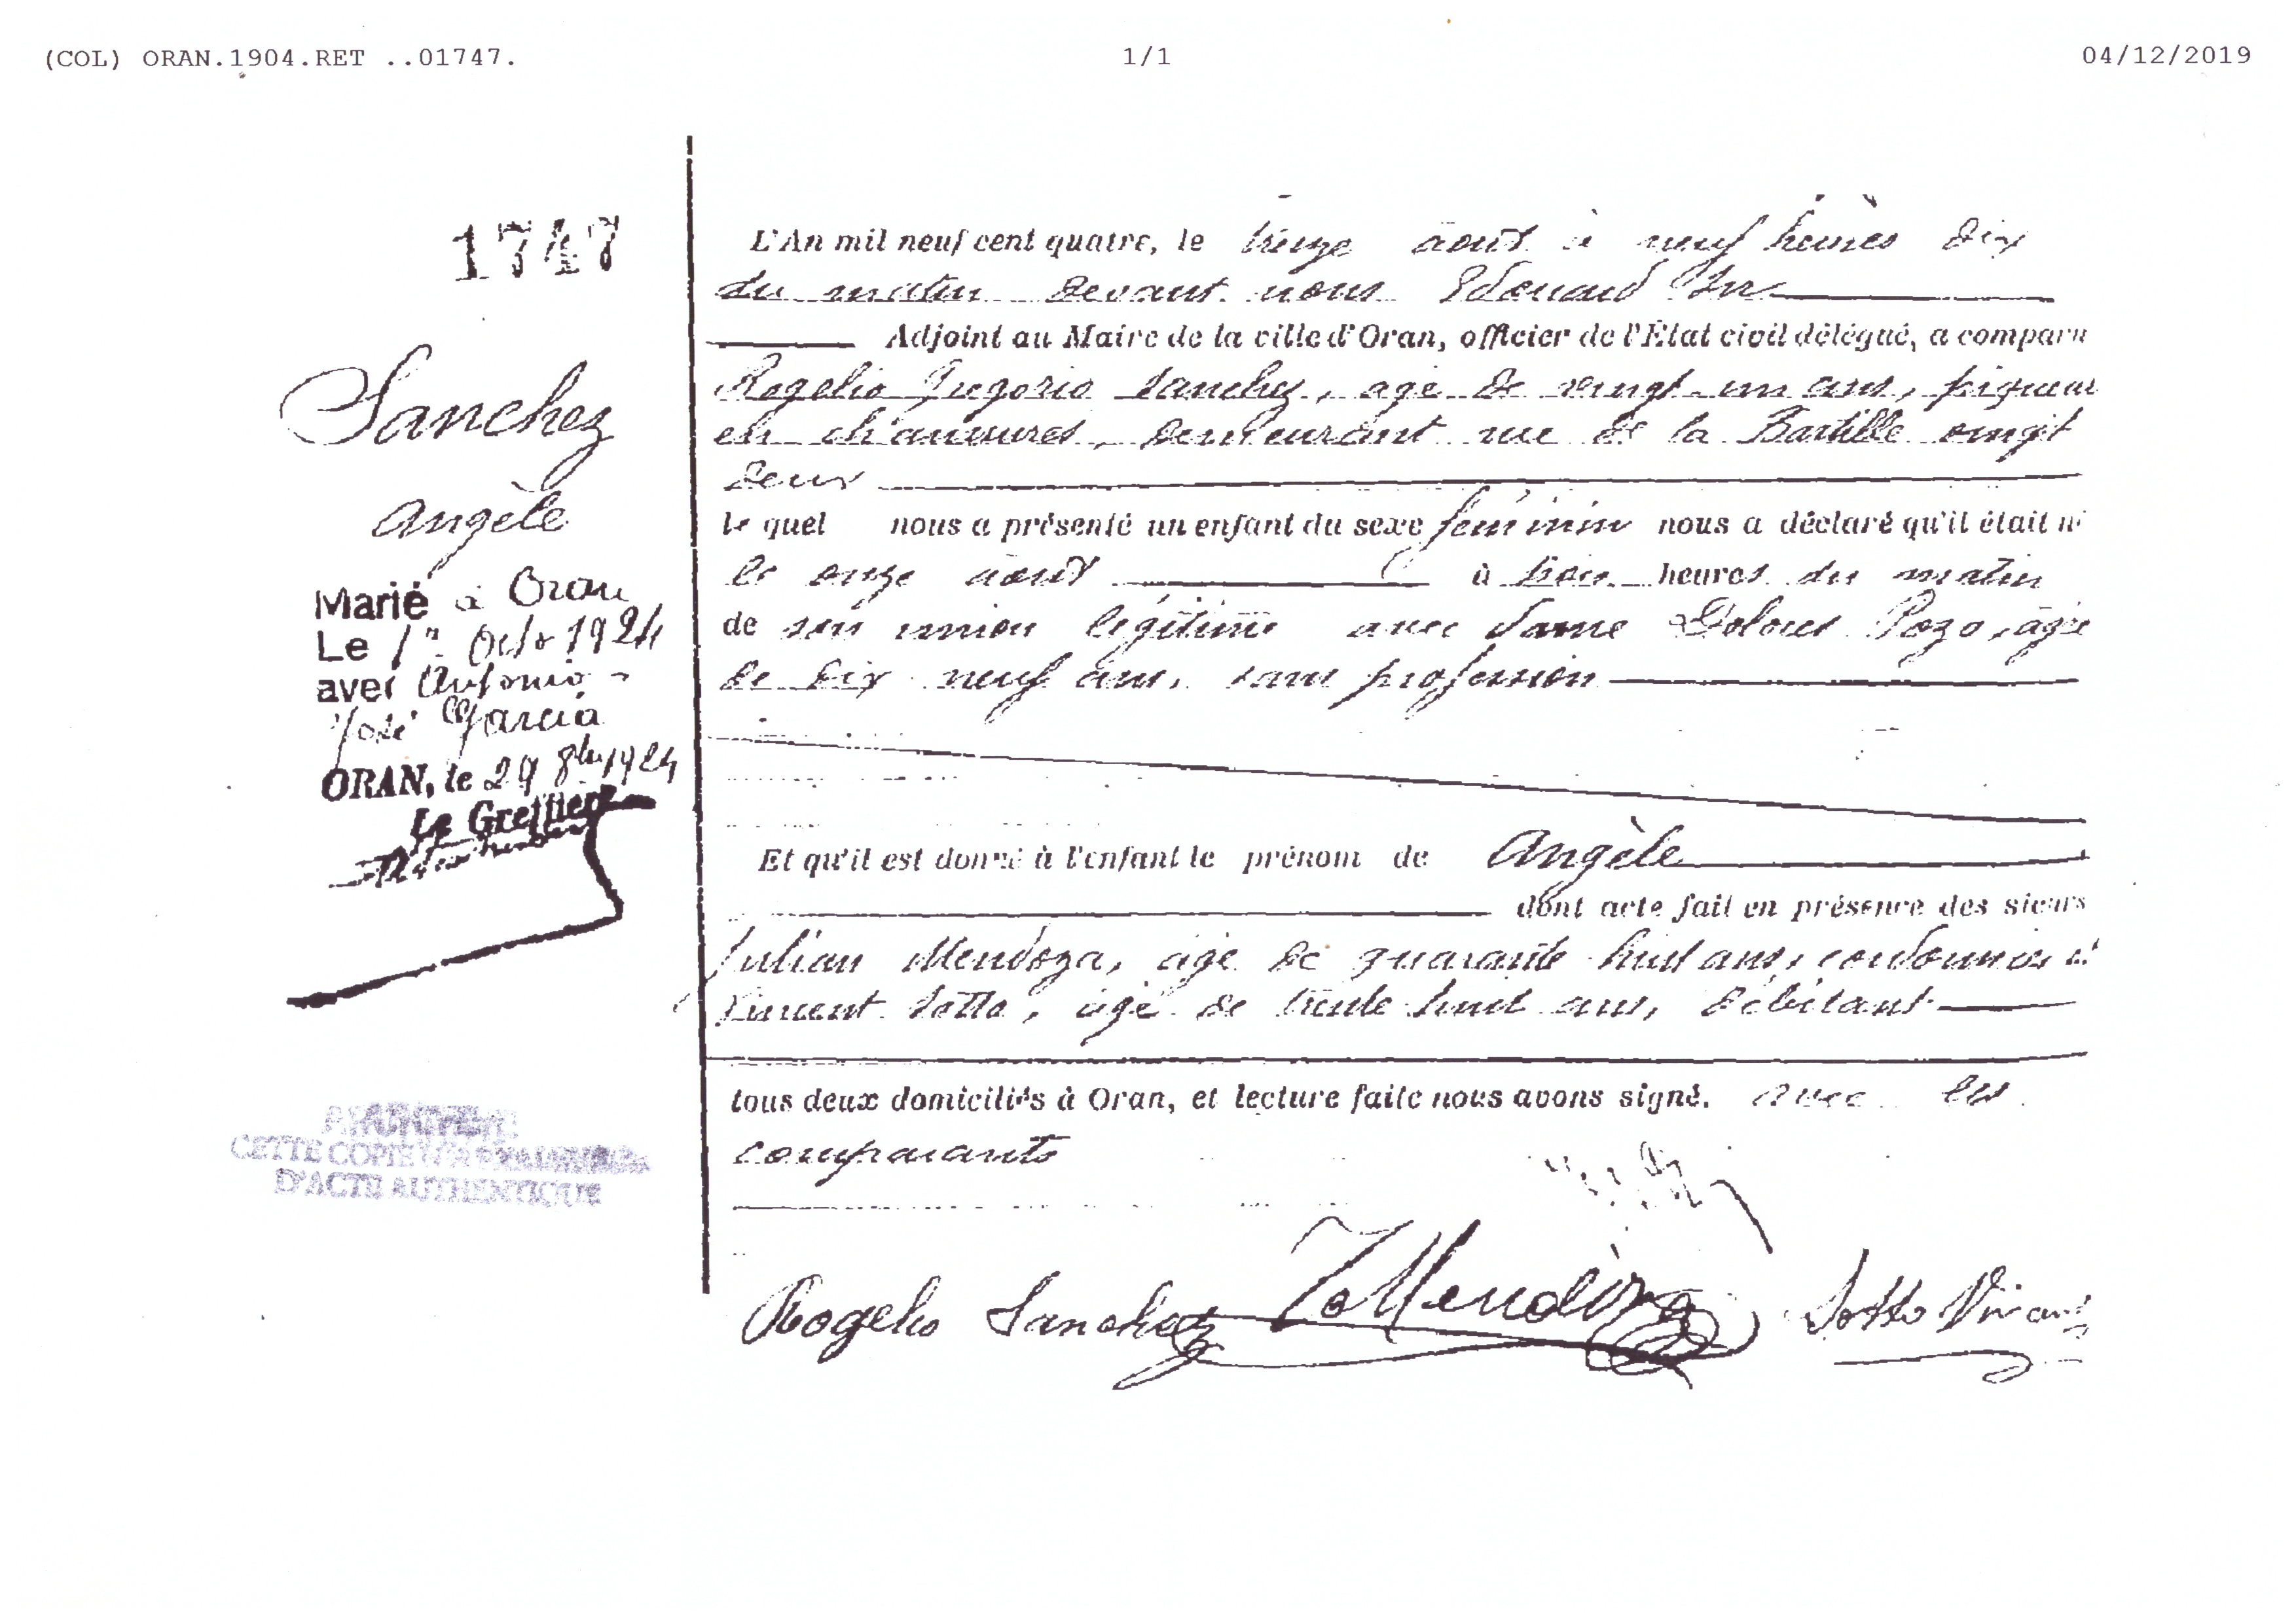 (COL) ORAN.1904.RET ..01747. 1/1 04/12/2019
1747
Sanchez
Angèle
Marié à Oran
Le 1er Octo 1924
avec Antonio
José Garcia
ORAN, le 29 8bre 1924
Le Greffier
CETTE COPIE
D'ACTE AUTHENTIQUE
L'An mil neuf cent quatre, le treize août à neuf heures dix
du matin devant nous Edouard
Adjoint au Maire de la ville d'Oran, officier de l'État civil délégué, a comparu
Rogelio Gregorio Sanchez, agé de vingt-un ans, piqueur
en chaussures, demeurant rue de la Bastille vingt
deux
le quel nous a présenté un enfant du sexe féminin nous a déclaré qu'il était né
le onze août à trois heures du matin
de son union légitime avec dame Dolores Pozo, agée
de dix neuf ans, sans profession
Et qu'il est donné à l'enfant le prénom de Angèle
dont acte fait en présence des sieurs
Julian Mendoza, agé de quarante huit ans, cordonnier et
Vincent Sotto, agé de trente huit ans, débitant
tous deux domiciliés à Oran, et lecture faite nous avons signé. avec les
comparants
Rogelio Sanchez Mendoza Sotto Vincent